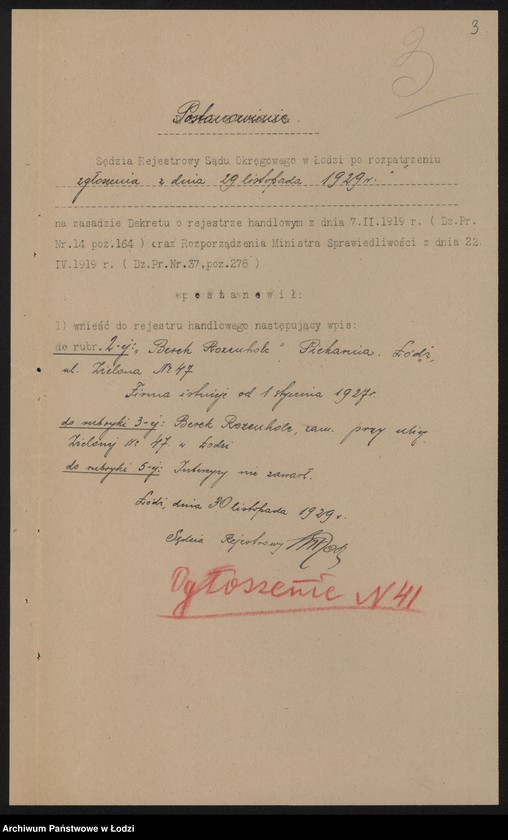 3
3
Postanowienie.
Sędzia Rejestrowy Sądu Okręgowego w Łodzi po rozpatrzeniu
zgłoszenia z dnia 29 listopada 1929 r.
na zasadzie Dekretu o rejestrze handlowym z dnia 7.II.1919 r. ( Dz.Pr.
Nr.14 poz.164 ) oraz Rozporządzenia Ministra Sprawiedliwości z dnia 22
IV.1919 r. ( Dz.Pr.Nr.37,poz.276 )
p o s t a n o w i ł :
1) wnieść do rejestru handlowego następujący wpis:
do rubr. 2-ej: „Berek Rozenholc" Piekarnia. Łódź,
ul. Zielona № 47
Firma istnieje od 1 stycznia 1927 r.
do rubryki 3-ej: Berek Rozenholc, zam. przy ulicy
Zielonej № 47 w Łodzi
do rubryki 5-ej: Intercyzy nie zawarł.
Łódź, dnia 30 listopada 1929 r.
Sędzia Rejestrowy
Ogłoszenie N 41
Archiwum Państwowe w Łodzi